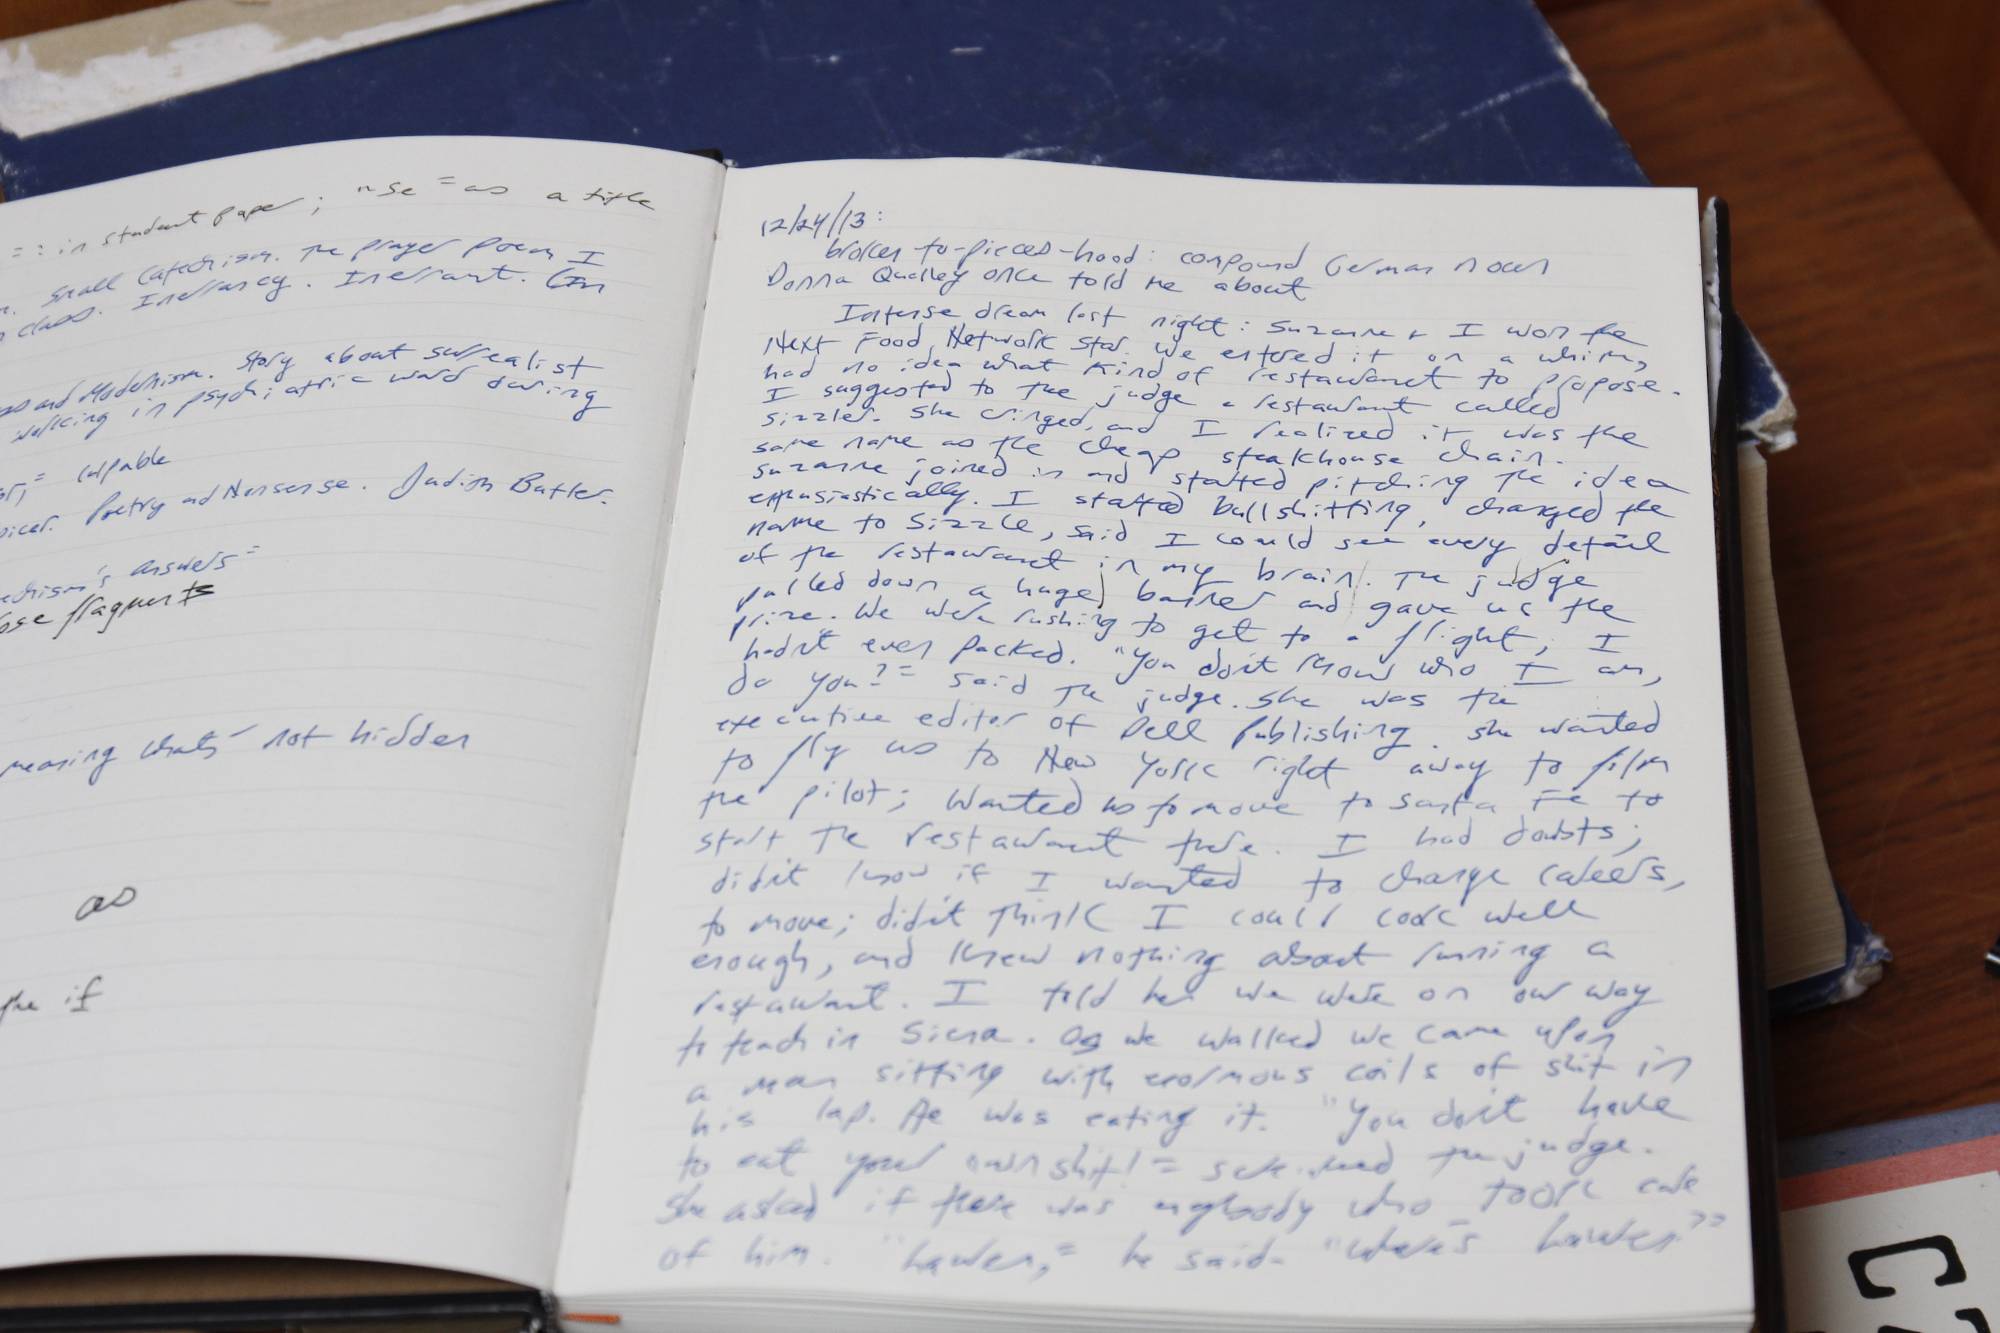 = : in student paper; "use" as a title
Small Catechism. The prayer poem I
class. Inerrancy. Inerrant.
and Modernism. Story about surrealist
walking in psychiatric ward during
= culpable
Poetry and Nonsense. Judith Butler.
answers"
fragments
meaning what's not hidden
as
the if
12/24/13:
broken-to-pieces-hood: compound German noun
Donna Qualley once told me about
Intense dream last night: Suzanne + I won the
Next Food Network Star. We entered it on a whim,
had no idea what kind of restaurant to propose.
I suggested to the judge a restaurant called
Sizzler. She cringed, and I realized it was the
same name as the cheap steakhouse chain.
Suzanne joined in and started pitching the idea
enthusiastically. I started bullshitting, changed the
name to Sizzle, said I could see every detail
of the restaurant in my brain. The judge
pulled down a huge banner and gave us the
prize. We were rushing to get to a flight; I
hadn't even packed. "You don't know who I am,
do you?" said the judge. She was the
executive editor of Dell Publishing. She wanted
to fly us to New York right away to film
the pilot; wanted us to move to Santa Fe to
start the restaurant there. I had doubts;
didn't know if I wanted to change careers,
to move; didn't think I could cook well
enough, and knew nothing about running a
restaurant. I told her we were on our way
to teach in Siena. As we walked we came upon
a man sitting with enormous coils of shit in
his lap. He was eating it. "You don't have
to eat your own shit!" screamed the judge.
She asked if there was anybody who took care
of him. he said. "Where's